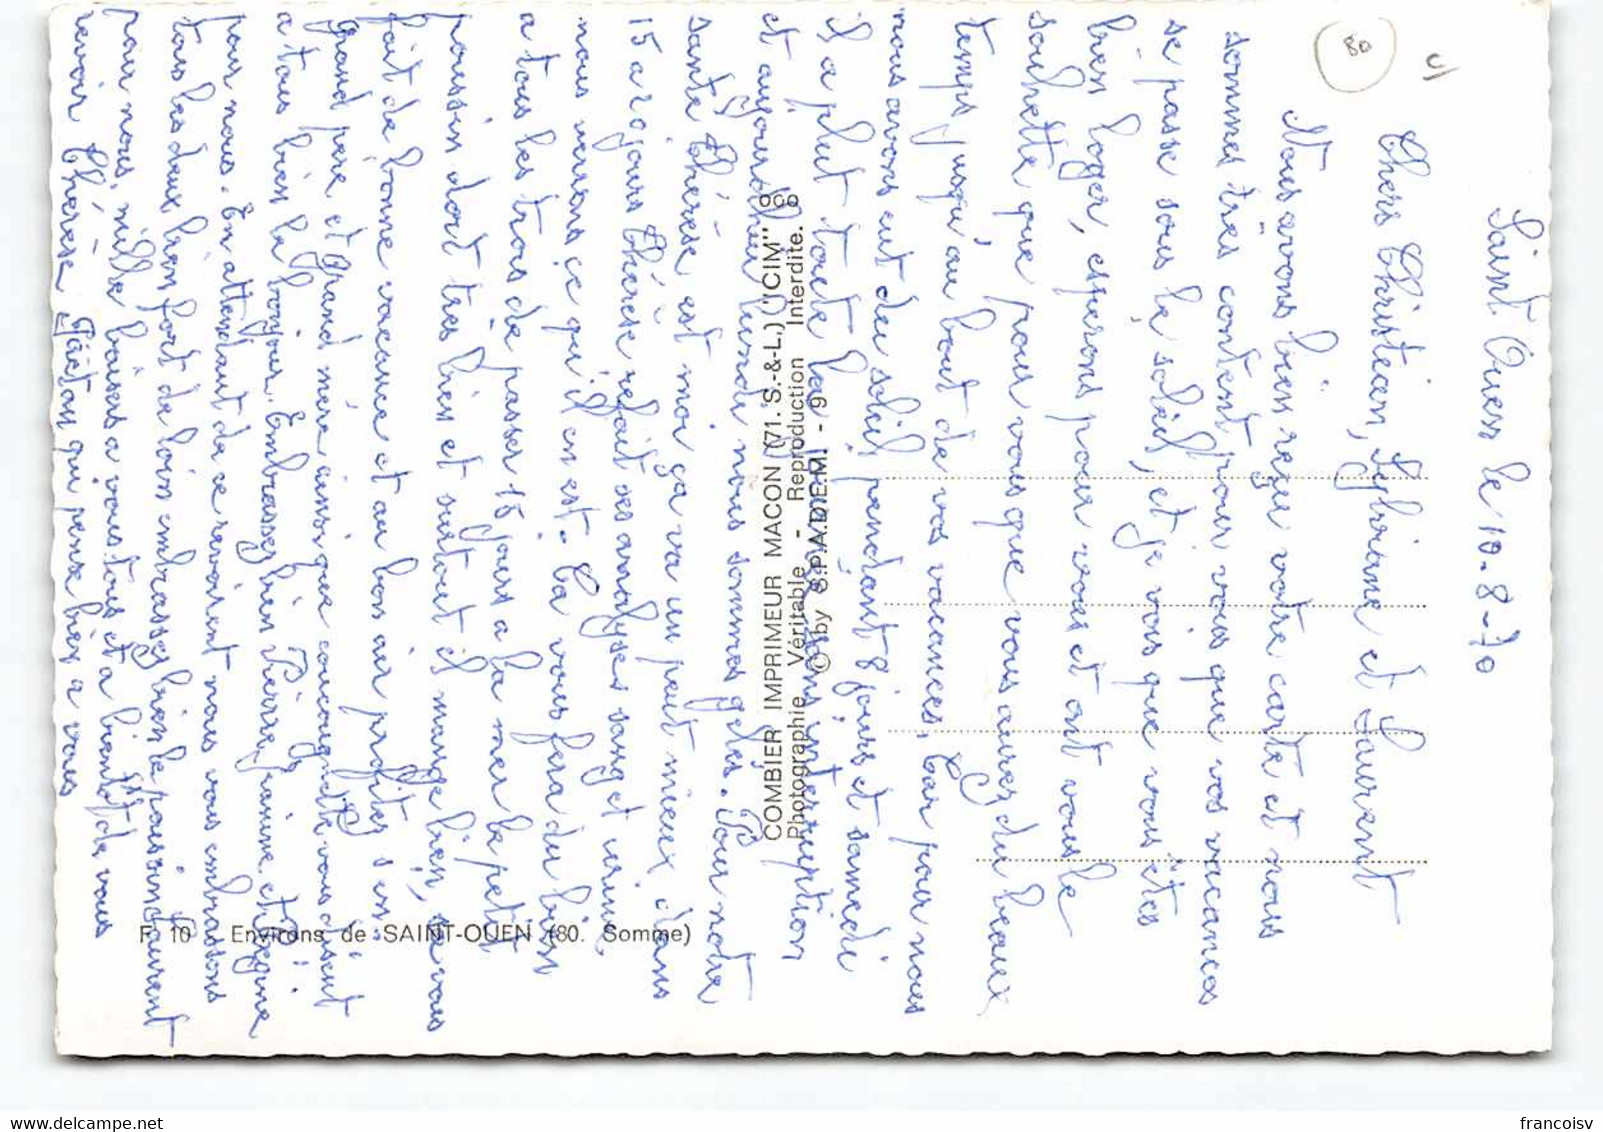 Saint Ouen le 10-8-70
Chers Christian, Sylviane et Laurent
Nous avons bien reçu votre carte et nous
sommes très content pour vous que vos vacances
se passe sous le soleil, et je vois que vous êtes
bien loger, esperons pour vous et ont vous le
souhette que pour vous que vous aurez du beaux
temps jusqu'au bout de vos vacances. Car pour nous
nous avons eut du soleil pendant 8 jours et samedi
il a plut toute la sans interruption
et aujourdhui lundi nous sommes gelés. Pour notre
santé Thérèse est moi ça va un peut mieux dans
15 a 20 jours Thérèse refait ses annalyses sang et urine,
nous verrons ce qu'il en est. Ca vous fera du bien
a tous les trois de passer 15 jours a la mer le petit
poussin dort très bien et surtout il mange bien,
fait de bonne vacance et au bon air profites s en.
grand père et grand mère ainsi que vous disent
a tous bien le bonjour. Embrassez bien Pierre, Janine et Régine
pour nous. En attendant de se revoirent nous vous embrassons
tous les deux bien fort de loin embrassez bien le poussin Laurent
pour nous, mille baisers a vous tous et a bientôt de vous
revoir Thérèse Gaëton qui pense bien a vous
COMBIER IMPRIMEUR MACON (71. S.-&-L.) "CIM"
Photographie Véritable - Reproduction Interdite.
© by S.P.A.D.E.M. - 9
F. 10 Environs de SAINT-OUEN (80. Somme)
80
delcampe.net
francoisv